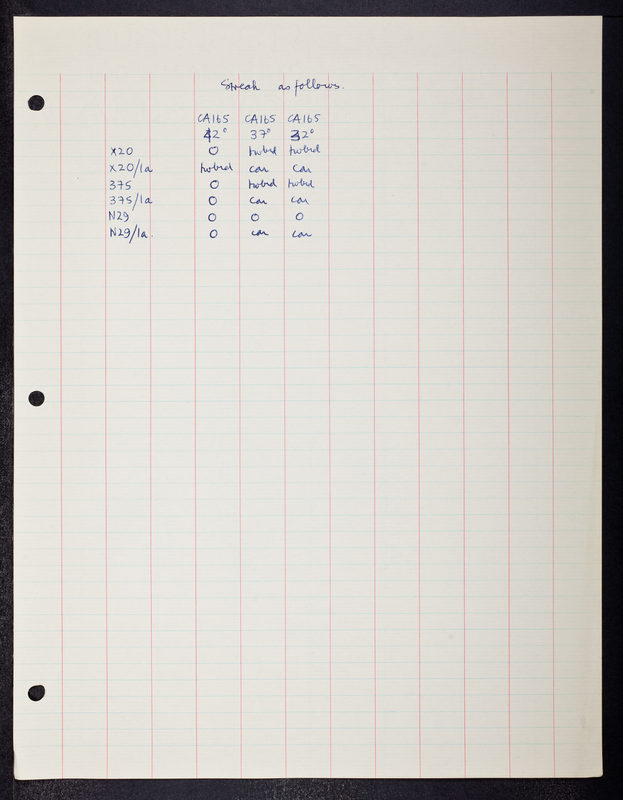 Streak as follows.
CA165 CA165 CA165
42° 37° 32°
X20 0 turbid turbid
X20/1a turbid con con
375 0 turbid turbid
375/1a 0 con con
N29 0 0 0
N29/1a. 0 con con